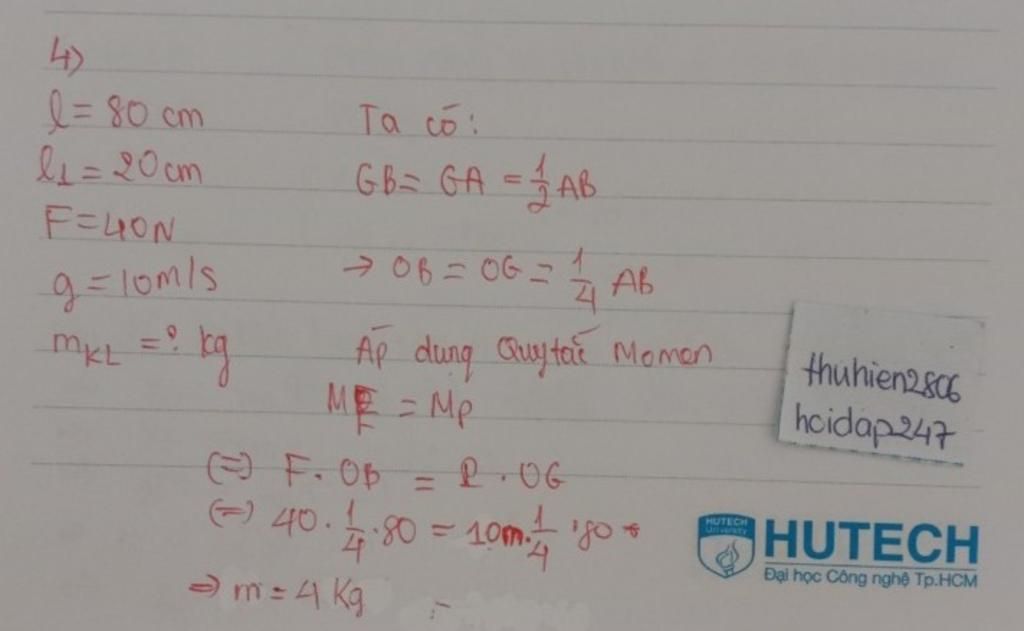 4)
l = 80 cm
l1 = 20 cm
F = 40N
g = 10m/s
mKL = ? kg
Ta có:
GB = GA = 1/2 AB
→ OB = OG = 1/4 AB
Áp dung Quy tắc Momen
MF = Mp
(=) F. OB = P . OG
(=) 40. 1/4 .80 = 10m. 1/4 .80
=> m = 4 Kg
thuhien2806
hoidap247
HUTECH
UNIVERSITY
HUTECH
Đại học Công nghệ Tp.HCM